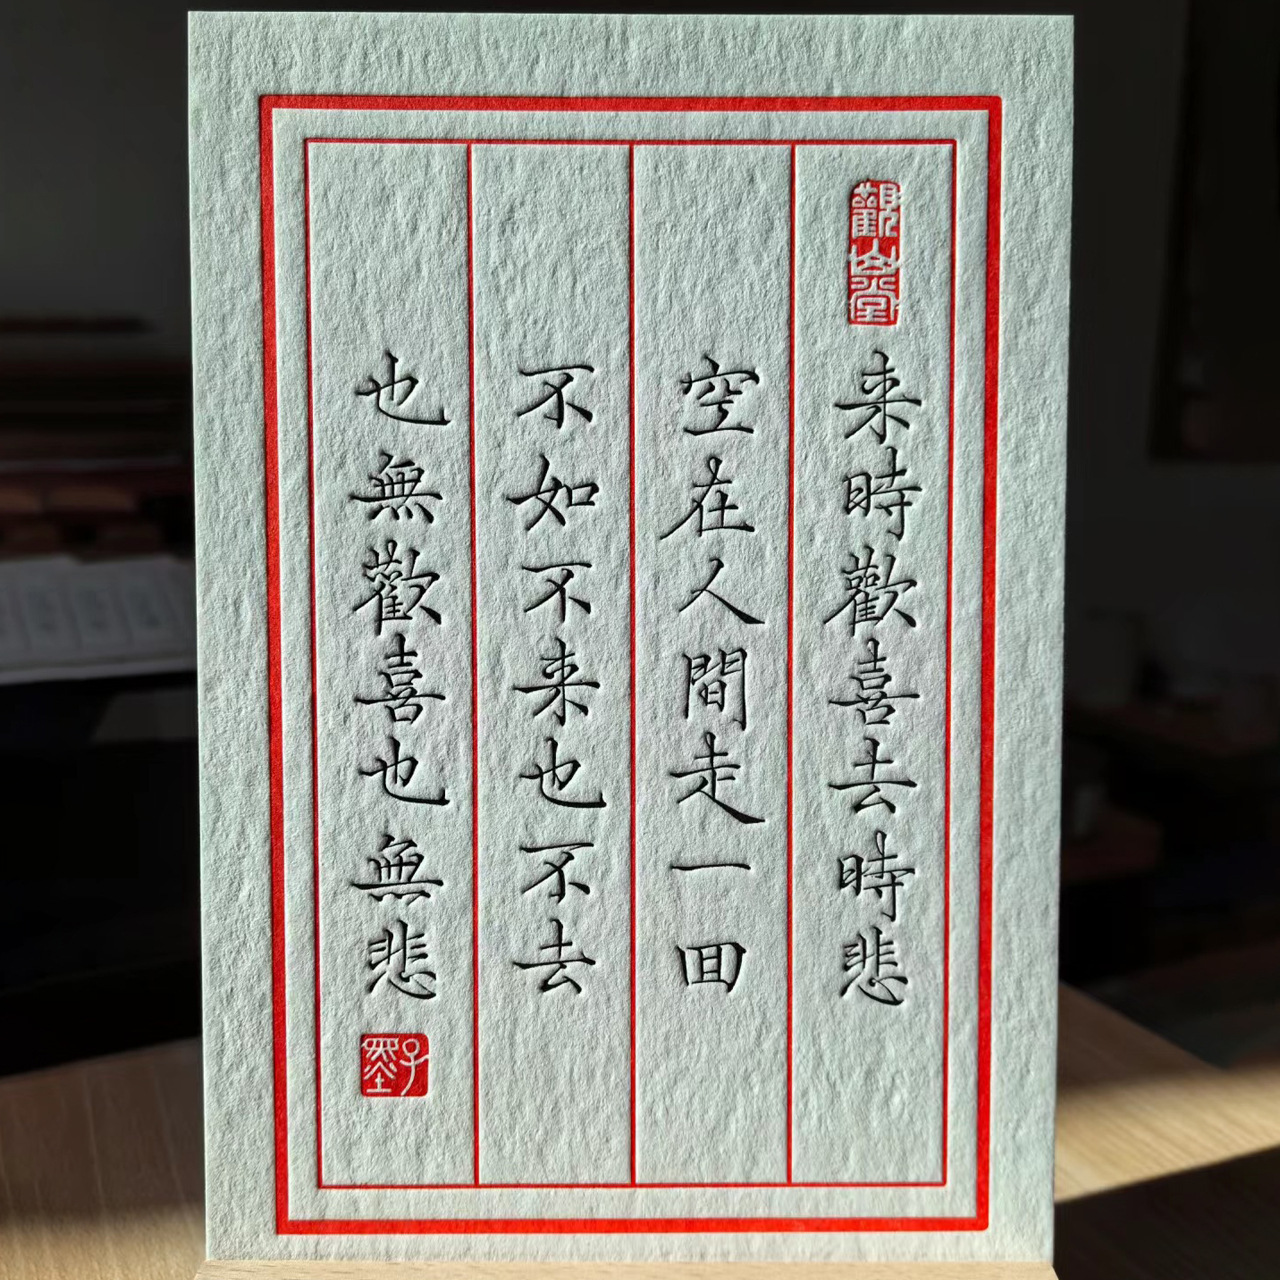 觀山堂
来時歡喜去時悲
空在人間走一回
不如不来也不去
也無歡喜也無悲
子墨